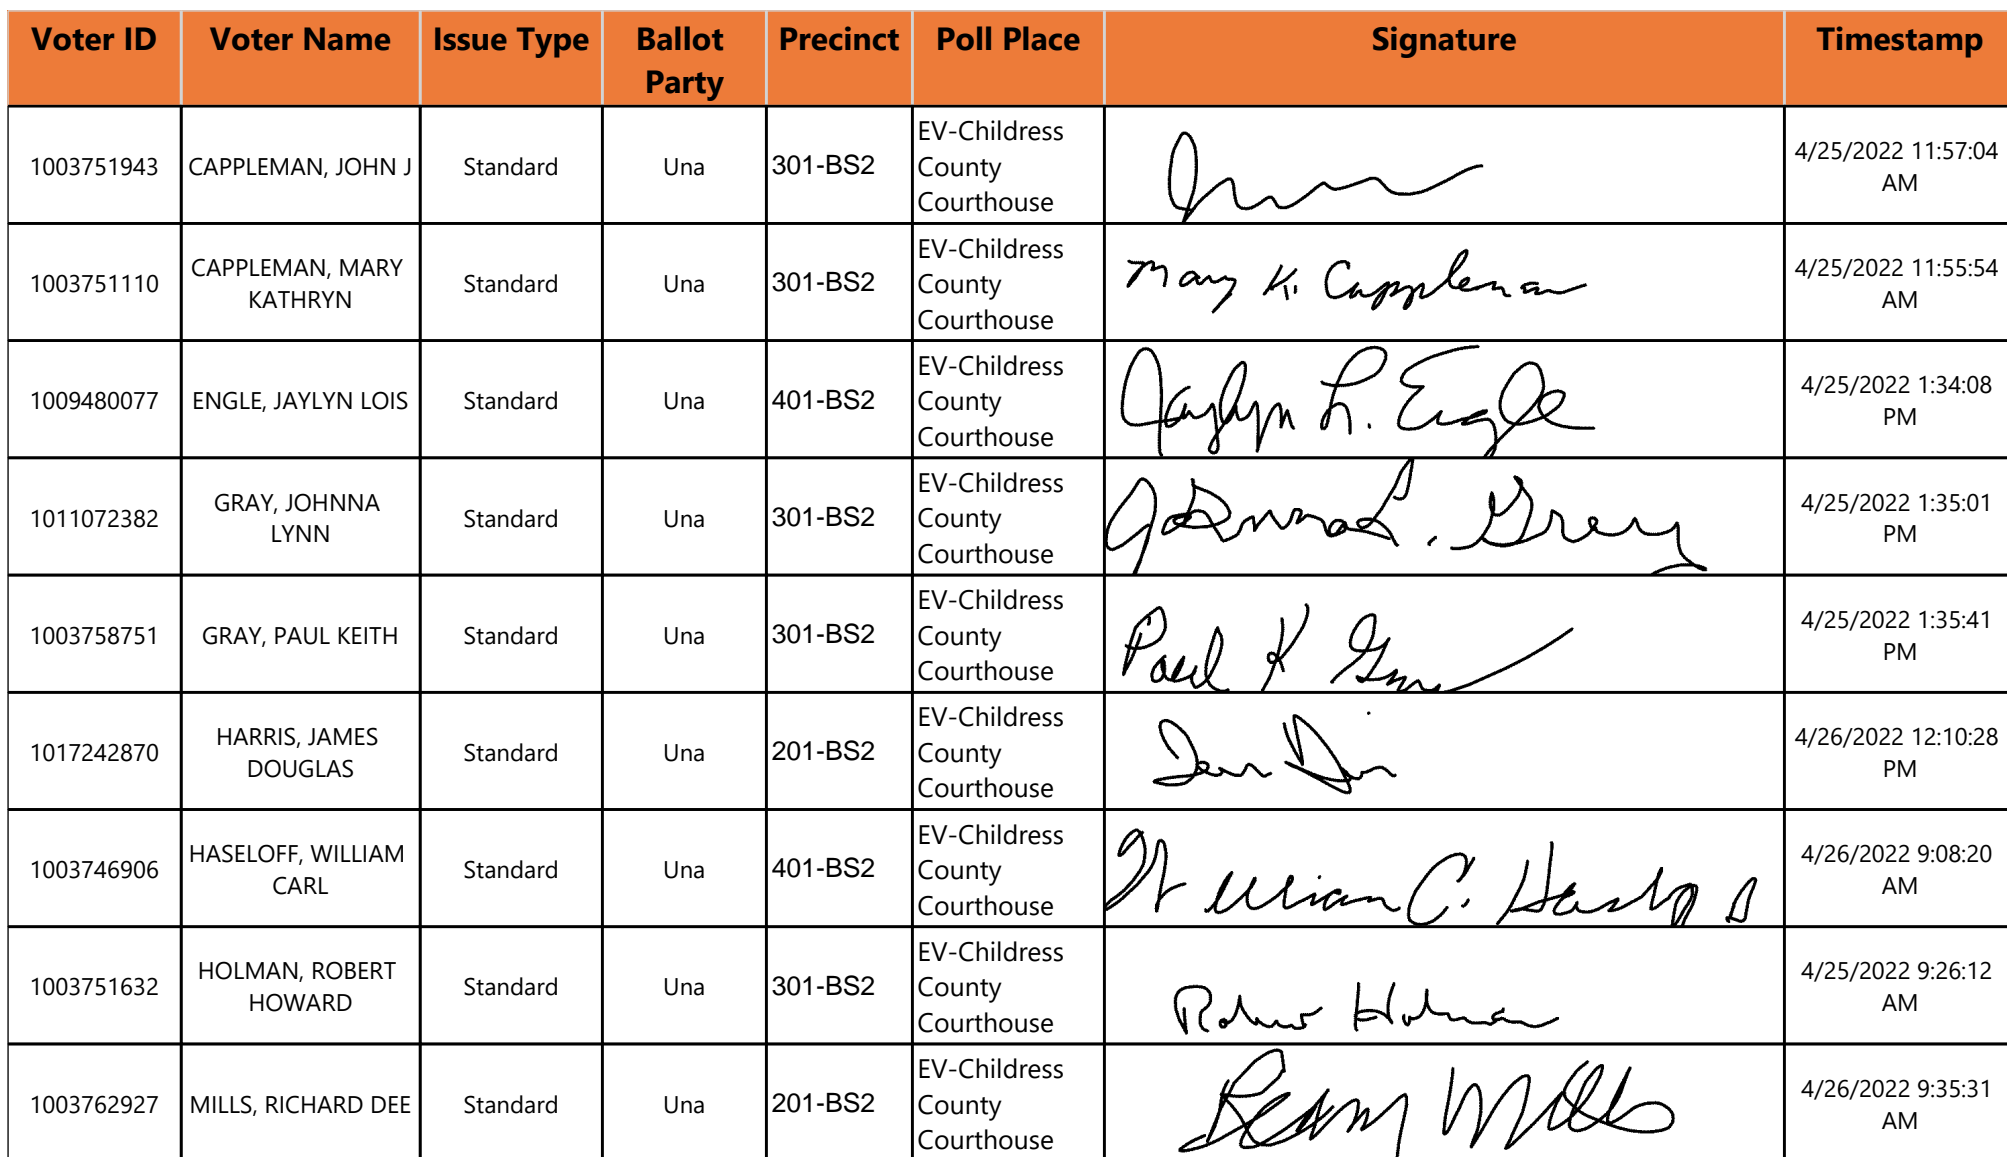 Voter ID Voter Name Issue Type Ballot Party Precinct Poll Place Signature Timestamp
1003751943 CAPPLEMAN, JOHN J Standard Una 301-BS2 EV-Childress County Courthouse 4/25/2022 11:57:04 AM
1003751110 CAPPLEMAN, MARY KATHRYN Standard Una 301-BS2 EV-Childress County Courthouse Mary K. Cappleman 4/25/2022 11:55:54 AM
1009480077 ENGLE, JAYLYN LOIS Standard Una 401-BS2 EV-Childress County Courthouse Jaylyn L. Engle 4/25/2022 1:34:08 PM
1011072382 GRAY, JOHNNA LYNN Standard Una 301-BS2 EV-Childress County Courthouse Johnna L. Gray 4/25/2022 1:35:01 PM
1003758751 GRAY, PAUL KEITH Standard Una 301-BS2 EV-Childress County Courthouse Paul K Gray 4/25/2022 1:35:41 PM
1017242870 HARRIS, JAMES DOUGLAS Standard Una 201-BS2 EV-Childress County Courthouse 4/26/2022 12:10:28 PM
1003746906 HASELOFF, WILLIAM CARL Standard Una 401-BS2 EV-Childress County Courthouse William C. Haseloff 4/26/2022 9:08:20 AM
1003751632 HOLMAN, ROBERT HOWARD Standard Una 301-BS2 EV-Childress County Courthouse Robert Holman 4/25/2022 9:26:12 AM
1003762927 MILLS, RICHARD DEE Standard Una 201-BS2 EV-Childress County Courthouse Mills 4/26/2022 9:35:31 AM